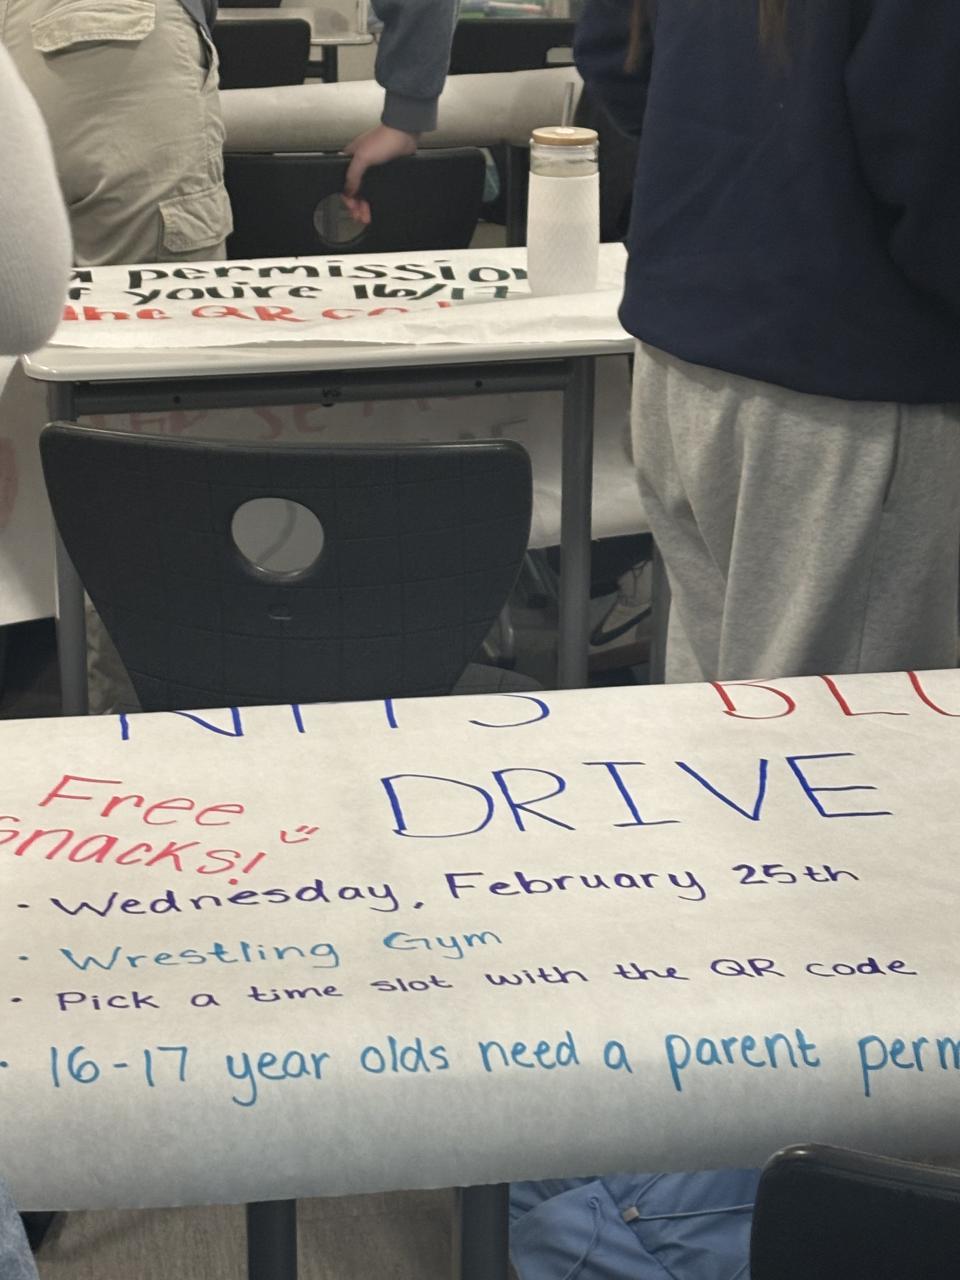 a permission
if you're 16/17
the QR code
NHS BLO
DRIVE
Free
Snacks!
• Wednesday, February 25th
• Wrestling Gym
• Pick a time slot with the QR code
• 16-17 year olds need a parent perm